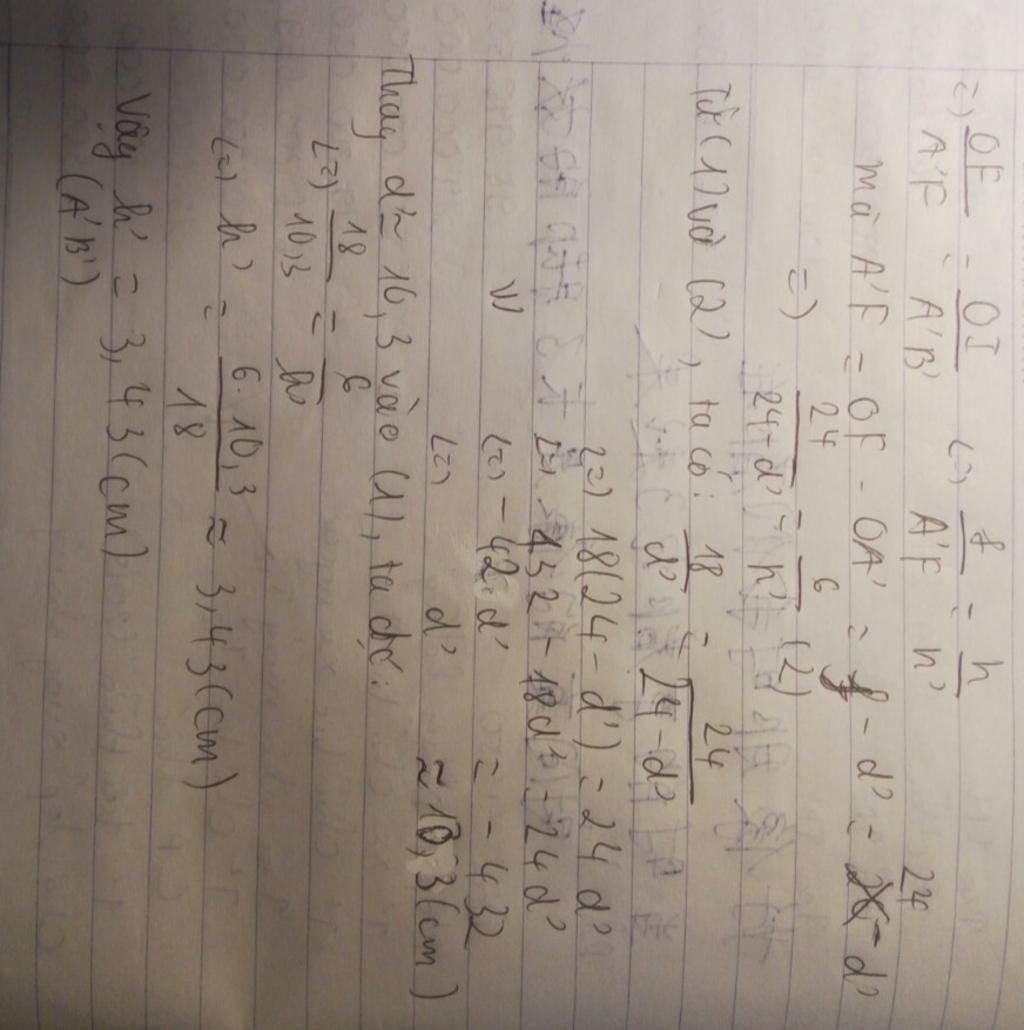 =) OF/A'F = OI/A'B' (=) f/A'F = h/h'
mà A'F = OF - OA' = f - d' = 24 - d'
=) 24/24-d' = 6/h' (2)
Từ (1) và (2), ta có: 18/d' = 24/24-d'
(=) 18(24 - d') = 24d'
(=) 432 - 18d' = 24d'
(=) - 42d' = - 432
(=) d' ≈ 10,3 (cm)
Thay d' = 10,3 vào (1), ta đc:
(=) 18/10,3 = 6/h'
(=) h' = 6.10,3/18 ≈ 3,43 (cm)
Vậy h' = 3,43 (cm)
(A'B')